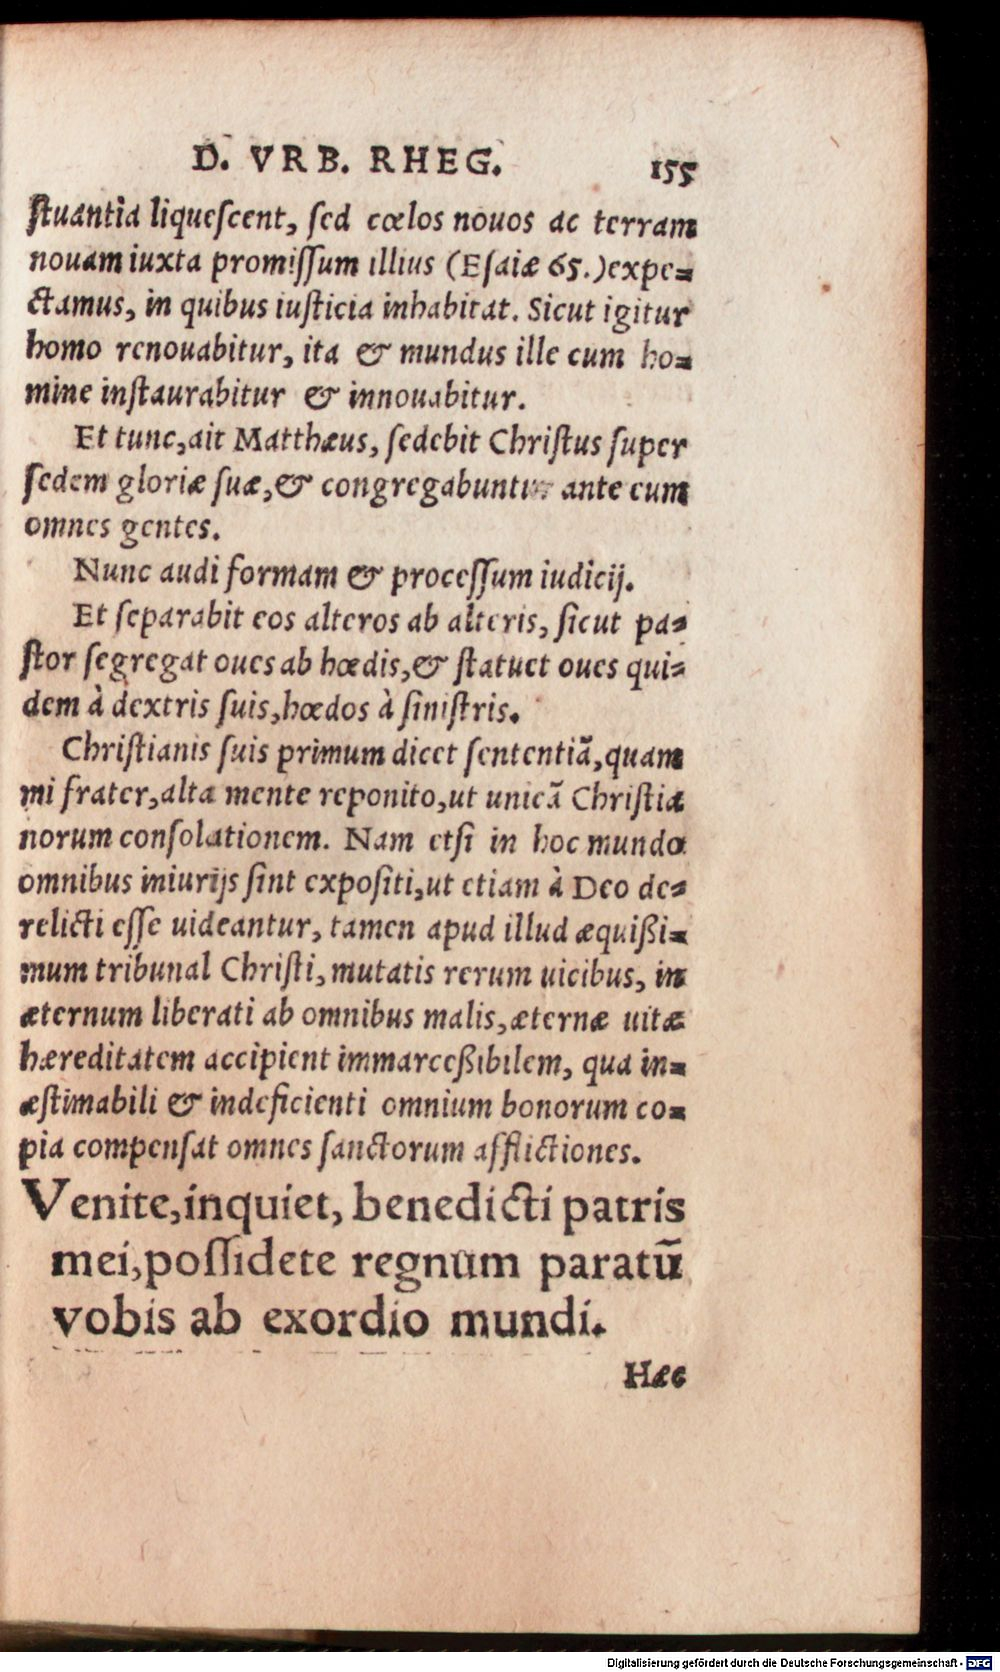 D. VRB. RHEG. 155
ſtuantia liqueſcent, ſed cœlos nouos ac terram
nouam iuxta promiſſum illius (Eſaiæ 65.) expe=
ctamus, in quibus iuſticia inhabitat. Sicut igitur
homo renouabitur, ita & mundus ille cum ho=
mine inſtaurabitur & innouabitur.
Et tunc, ait Matthæus, ſedebit Chriſtus ſuper
ſedem gloriæ ſuæ, & congregabuntur ante eum
omnes gentes.
Nunc audi formam & proceſſum iudicij.
Et ſeparabit eos alteros ab alteris, ſicut pa=
ſtor ſegregat oues ab hœdis, & ſtatuet oues qui=
dem à dextris ſuis, hœdos à ſiniſtris.
Chriſtianis ſuis primum dicet ſententiã, quam
mi frater, alta mente reponito, ut unicã Chriſtia
norum conſolationem. Nam etſi in hoc mundo
omnibus iniurijs ſint expoſiti, ut etiam à Deo de=
relicti eſſe uideantur, tamen apud illud æquißi=
mum tribunal Chriſti, mutatis rerum uicibus, in
æternum liberati ab omnibus malis, æternæ uitæ
hæreditatem accipient immarceßibilem, qua in=
æſtimabili & indeficienti omnium bonorum co=
pia compenſat omnes ſanctorum afflictiones.
Venite, inquiet, benedicti patris
mei, poſſidete regnum paratũ
vobis ab exordio mundi.
Hæc
Digitalisierung gefördert durch die Deutsche Forschungsgemeinschaft - DFG